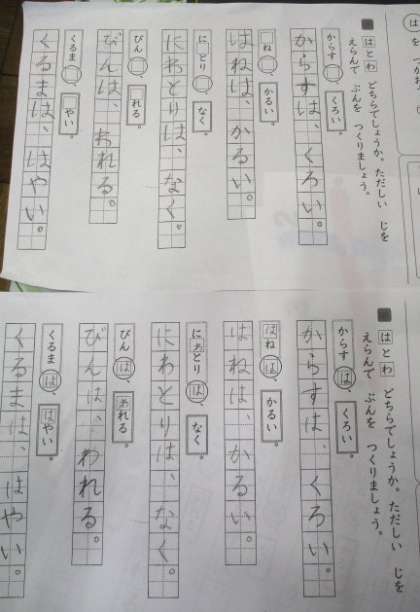 は と わ どちらでしょうか。ただしい じを
えらんで ぶんを つくりましょう。
からす◯、くろい。
からすは、くろい。
□ね◯、かるい。
はねは、かるい。
に□とり◯、なく。
にわとりは、なく。
びん◯、□れる。
びんは、われる。
くるま◯、□やい。
くるまは、はやい。
は と わ どちらでしょうか。ただしい じを
えらんで ぶんを つくりましょう。
からすは、くろい。
からすは、くろい。
はねは、かるい。
はねは、かるい。
にわとりは、なく。
にわとりは、なく。
びんは、われる。
びんは、われる。
くるまは、はやい。
くるまは、はやい。